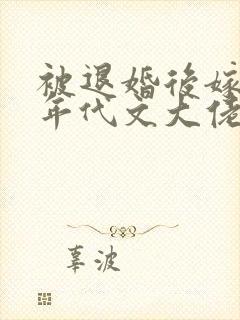 被退婚后嫁
年代文大佬
辜波